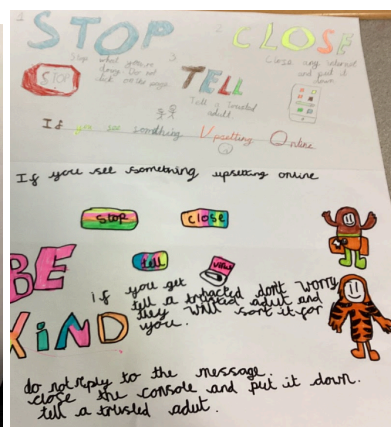 1 STOP
Stop what you're
doing. Do not
click on the page.
STOP
2 CLOSE
Close any internet
and put it
down
3 TELL
Tell a trusted
adult
If you see something Upsetting Online
If you see something upsetting online
Stop
Close
tell
BE
KiND
if you get hacked dont worry
tell a trusted adult and
they will sort it for
you.
do not reply to the message.
close the console and put it down.
tell a trusted adult.